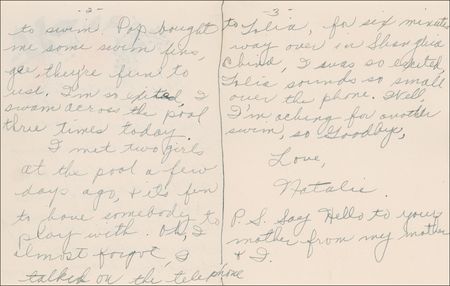 -2-
to swim. Pop bought
me some swim fins,
gee, they're fun to
use. I'm so exited, I
swam across the pool
three times today.
I met two girls
at the pool a few
days ago, & it's fun
to have somebody to
play with. Oh, I
almost forgot, I
talked on the telephone
-3-
to Tolia, for six minutes
way over in Shanghia
China, I was so excited,
Tolia sounds so small
over the phone. Well,
I'm aching for another
swim, so Goodbye,
Love,
Natalie.
P.S. Say Hello to your
mother from my mother
& I.